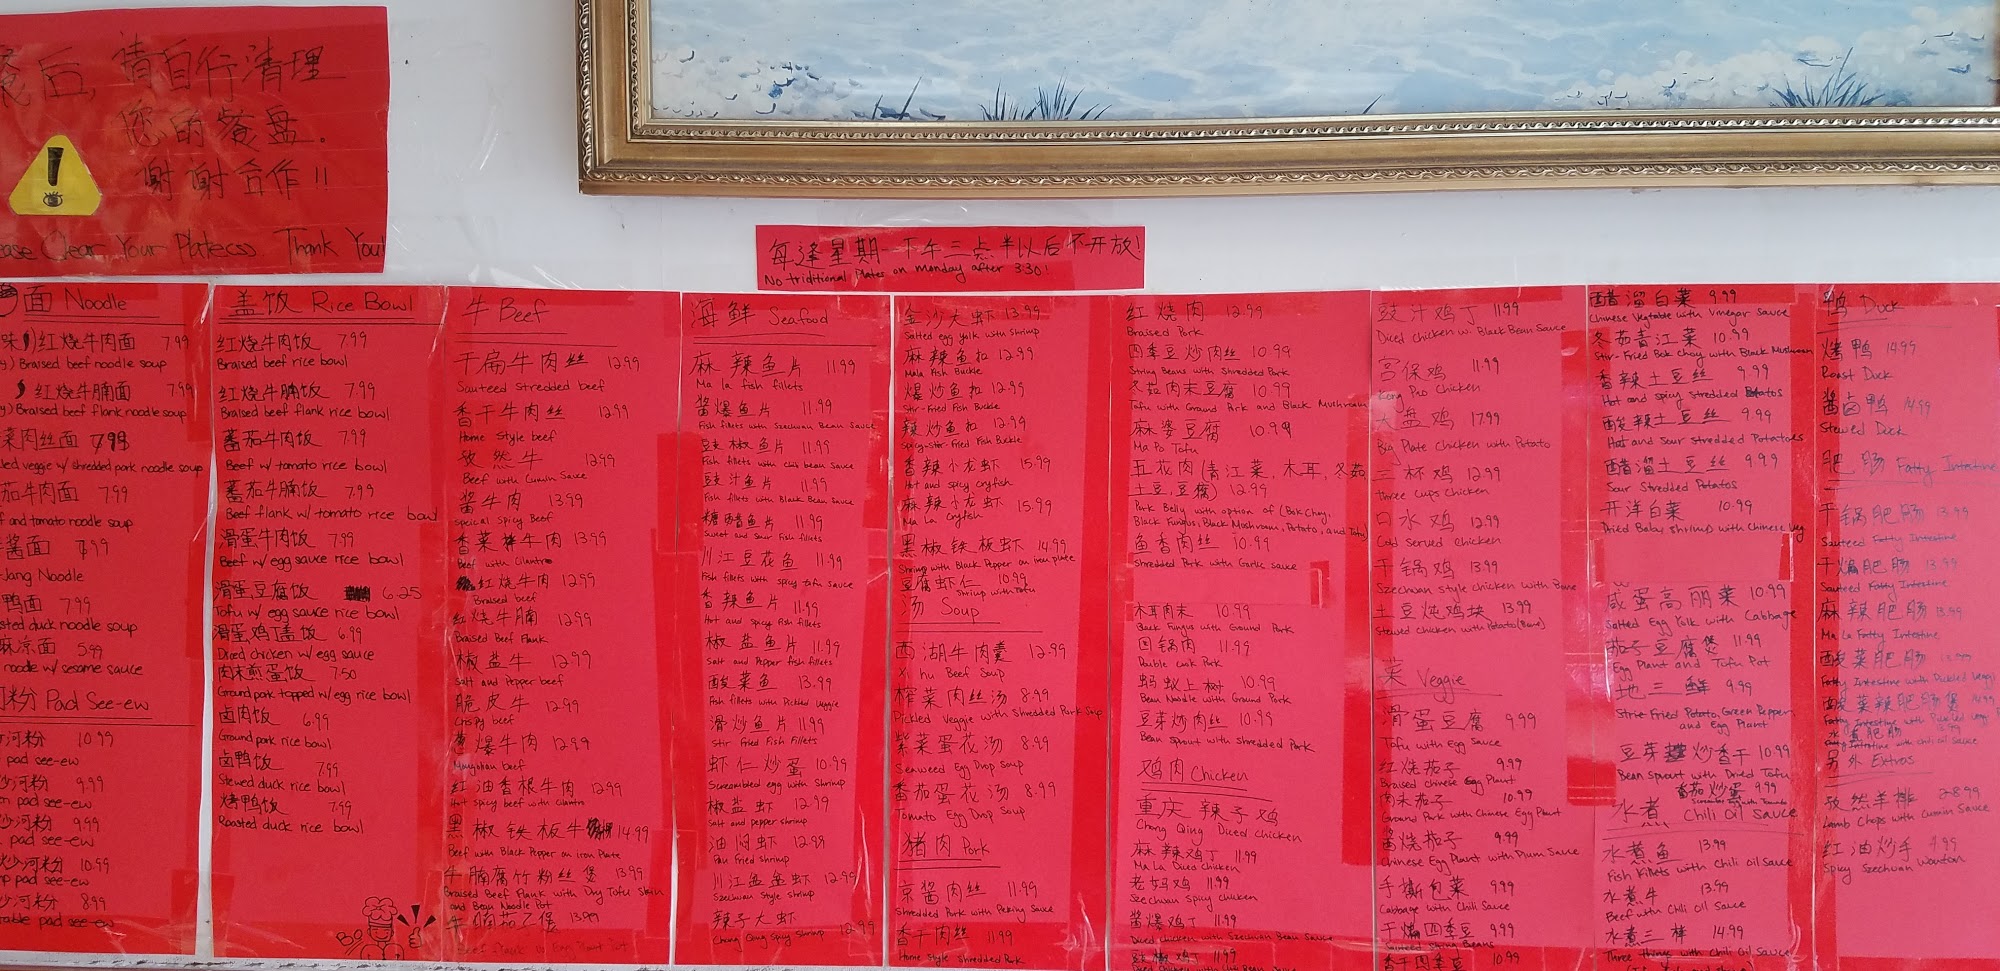 餐后,请自行清理
您的餐盘。
谢谢合作!!
ease Clear Your Platecss Thank You!
每逢星期一下午三点半以后不开放!
No triditional Plates on monday after 3:30!
面 Noodle
味)红烧牛肉面 7.99
y) Braised beef noodle soup
红烧牛腩面 7.99
y) Braised beef flank noodle soup
菜肉丝面 7.99
led veggie w/ shredded pork noodle soup
茄牛肉面 7.99
f and tomato noodle soup
酱面 7.99
-Jang Noodle
鸭面 7.99
sted duck noodle soup
麻凉面 5.99
noodle w/ sesame sauce
粉 Pad See-ew
河粉 10.99
pad see-ew
炒河粉 9.99
en pad see-ew
炒河粉 9.99
pad see-ew
炒河粉 10.99
mp pad see-ew
炒河粉 8.99
table pad see-ew
盖饭 Rice Bowl
红烧牛肉饭 7.99
Braised beef rice bowl
红烧牛腩饭 7.99
Braised beef flank rice bowl
蕃茄牛肉饭 7.99
Beef w/ tomato rice bowl
蕃茄牛腩饭 7.99
Beef flank w/ tomato rice bowl
滑蛋牛肉饭 7.99
Beef w/ egg sauce rice bowl
滑蛋豆腐饭 6.25
Tofu w/ egg sauce rice bowl
滑蛋鸡丁盖饭 6.99
Diced chicken w/ egg sauce
肉末煎蛋饭 7.50
Ground pork topped w/ egg rice bowl
卤肉饭 6.99
Ground pork rice bowl
卤鸭饭 7.99
Stewed duck rice bowl
烤鸭饭 7.99
Roasted duck rice bowl
牛 Beef
干扁牛肉丝 12.99
Sauteed Stredded beef
香干牛肉丝 12.99
Home Style beef
孜然牛 12.99
Beef with Cumin Sauce
酱牛肉 13.99
Speical Spicy Beef
香菜拌牛肉 13.99
Beef with Cilantro
红烧牛肉 12.99
Braised beef
红烧牛腩 12.99
Braised Beef Flank
椒盐牛 12.99
Salt and Pepper beef
脆皮牛 12.99
Crispy beef
葱爆牛肉 12.99
Mongolian beef
红油香根牛肉 12.99
Hot Spicy beef with Cilantro
黑椒铁板牛 14.99
Beef with Black Pepper on Iron Plate
牛腩腐竹粉丝煲 13.99
Braised Beef Flank with Dry Tofu Skin
and Bean Noodle Pot
牛腩茄子煲 13.99
Beef flank w Egg Plant Pot
海鲜 Seafood
麻辣鱼片 11.99
Ma la fish fillets
酱爆鱼片 11.99
Fish fillets with Szechuan Bean Sauce
豆椒鱼片 11.99
Fish fillets with chili bean Sauce
豉汁鱼片 11.99
Fish fillets with Black Bean Sauce
糖醋鱼片 11.99
Sweet and Sour Fish fillets
川江豆花鱼 11.99
Fish fillets with spicy tofu Sauce
香辣鱼片 11.99
Hot and Spicy fish fillets
椒盐鱼片 11.99
Salt and Pepper fish fillets
酸菜鱼 13.99
Fish fillets with Pickled Veggie
滑炒鱼片 11.99
Stir Fried Fish Fillets
虾仁炒蛋 10.99
Screambled egg with Shrimp
椒盐虾 12.99
Salt and pepper shrimp
油焖虾 12.99
Pan Fried Shrimp
川江盆盆虾 12.99
Szechuan Style shrimp
辣子大虾 12.99
Chong Qing Spicy Shrimp
金沙大虾 13.99
Salted egg yolk with Shrimp
麻辣鱼扣 12.99
Mala Fish Buckle
爆炒鱼扣 12.99
Stir-Fried Fish Buckle
辣炒鱼扣 12.99
Spicy-Stir-Fried Fish Buckle
香辣小龙虾 15.99
Hot and spicy cryfish
麻辣小龙虾 15.99
Ma La Cryfish
黑椒铁板虾 14.99
Shrimp with Black Pepper on iron plate
豆腐虾仁 10.99
Shrimp with Tofu
汤 Soup
西湖牛肉羹 12.99
Xi hu Beef Soup
榨菜肉丝汤 8.99
Pickled Veggie with Shredded Pork Soup
紫菜蛋花汤 8.99
Seaweed Egg Drop Soup
番茄蛋花汤 8.99
Tomato Egg Drop Soup
猪肉 Pork
京酱肉丝 11.99
Shredded Pork with Peking Sauce
香干肉丝 11.99
Home Style Shredded Pork
红烧肉 12.99
Braised Pork
四季豆炒肉丝 10.99
String Beans with Shredded Pork
冬茹肉末豆腐 10.99
Tofu with Ground Pork and Black Mushroom
麻婆豆腐 10.99
Ma Po Tofu
五花肉(青江菜,木耳,冬茹,
土豆,豆腐) 12.99
Pork Belly with option of (Bok Choy,
Black Fungus, Black Mushroom, Potato, and Tofu)
鱼香肉丝 10.99
Shredded Pork with Garlic Sauce
木耳肉末 10.99
Black Fungus with Ground Pork
回锅肉 11.99
Double Cook Pork
蚂蚁上树 10.99
Bean Noodle with Ground Pork
豆芽炒肉丝 10.99
Bean Sprout with Shredded Pork
鸡肉 Chicken
重庆辣子鸡
Chong Qing Diced Chicken
麻辣鸡丁 11.99
Ma La Diced Chicken
老妈鸡 11.99
Szechuan Spicy Chicken
酱爆鸡丁 11.99
Diced chicken with Szechuan Bean Sauce
豆椒鸡丁 11.99
豉汁鸡丁 11.99
Diced chicken w. Black Bean Sauce
宫保鸡 11.99
Kong Pao Chicken
大盘鸡 17.99
Big Plate Chicken with Potato
三杯鸡 12.99
Three Cups Chicken
口水鸡 12.99
Cold Served Chicken
干锅鸡 13.99
Szechuan Style chicken with Bone
土豆炖鸡块 13.99
Stewed chicken with Potato (Bone)
菜 Veggie
滑蛋豆腐 9.99
Tofu with Egg Sauce
红烧茄子 9.99
Braised Chinese Egg Plant
肉末茄子 10.99
Ground Pork with Chinese Egg Plant
酱烧茄子 9.99
Chinese Egg Plant with Plum Sauce
手撕包菜 9.99
Cabbage with Chili Sauce
干煸四季豆 9.99
Sauteed String Beans
香干肉四季豆 10.99
醋溜白菜 9.99
Chinese Vegtable with Vinegar Sauce
冬茹青江菜 10.99
Stir-Fried Bok Choy with Black Mushroom
香辣土豆丝 9.99
Hot and Spicy Stredded Potatos
酸辣土豆丝 9.99
Hot and Sour Stredded Potatoes
醋溜土豆丝 9.99
Sour Stredded Potatos
开洋白菜 10.99
Dried Baby shrimp with Chinese Veg
咸蛋高丽菜 10.99
Salted Egg Yolk with Cabbage
茄子豆腐煲 11.99
Egg Plant and Tofu Pot
地三鲜 9.99
Stire Fried Potato, Green Pepper,
and Egg Plant
豆芽炒香干 10.99
Bean Sprout with Dried Tofu
番茄炒蛋 9.99
水煮 Chili Oil Sauce
水煮鱼 13.99
Fish Fillets with Chili Oil Sauce
水煮牛 13.99
Beef with Chili Oil Sauce
水煮三样 14.99
Three Things with Chili Oil Sauce
鸭 Duck
烤鸭 14.99
Roast Duck
酱卤鸭 14.99
Stewed Duck
肥肠 Fatty Intestine
干锅肥肠 13.99
Sauteed Fatty Intestine
干煸肥肠 13.99
Sauteed Fatty Intestine
麻辣肥肠 13.99
Ma La Fatty Intestine
酸菜肥肠 13.99
Fatty Intestine with Pickled Veggi
酸菜辣肥肠煲 14.99
Fatty Intestine with Pickled vegi
水煮肥肠
Fatty Intestine with Chili oil Sauce
另外 Extras
孜然羊排 28.99
Lamb Chops with Cumin Sauce
红油炒手 4.99
Spicy Szechuan Wonton